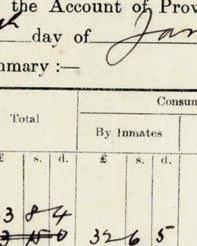 the Account of Prov
day of Jan
mmary :—
Consum
Total
By Inmates
£ s. d. £ s. d.
3 8 4
3 10 0 32 6 5